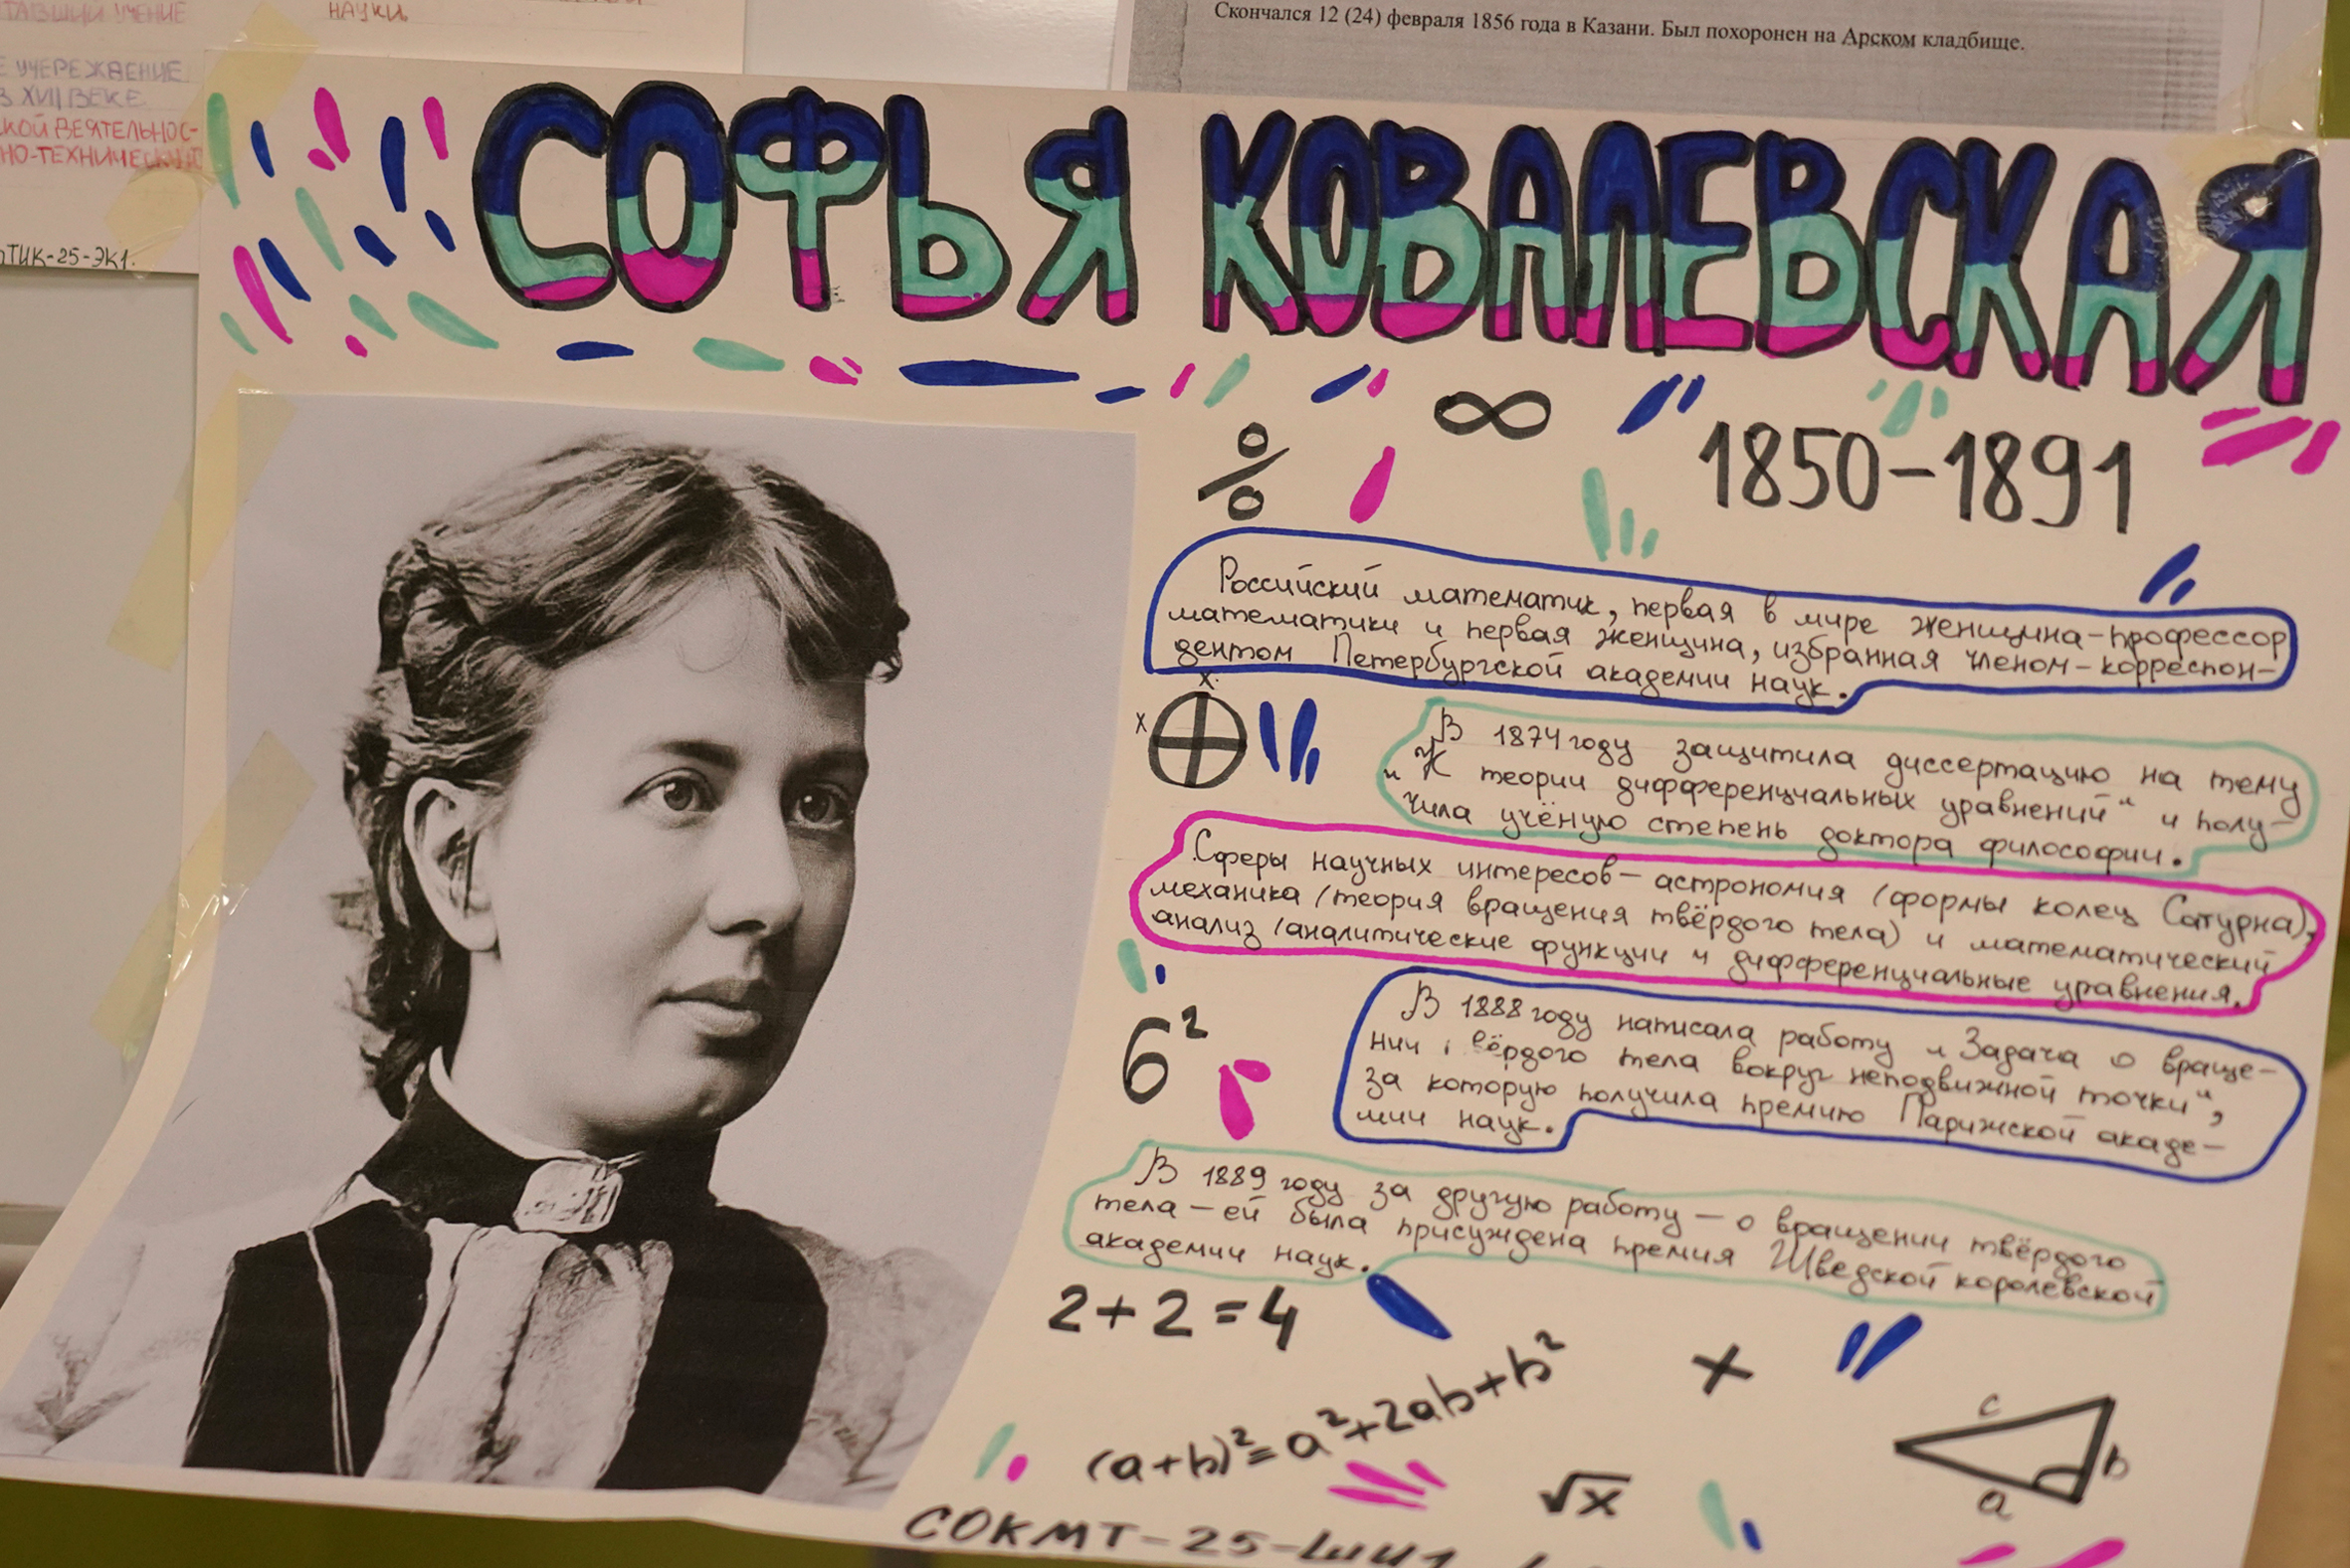 НАУКИ.
УЧЕНИЕ
УЧЕРЕЖДЕНИЕ
ВЕКЕ
Скончался 12 (24) февраля 1856 года в Казани. Был похоронен на Арском кладбище.
СОФЬЯ КОВАЛЕВСКАЯ
% ∞ 1850-1891
Российский математик, первая в мире женщина-профессор
математики и первая женщина, избранная членом-корреспон-
дентом Петербургской академии наук.
x
x
В 1874 году защитила диссертацию на тему
„К теории дифференциальных уравнений“ и полу-
чила учёную степень доктора философии.
Сферы научных интересов - астрономия (формы колец Сатурна),
механика (теория вращения твёрдого тела) и математический
анализ (аналитические функции и дифференциальные уравнения.
6²
В 1888 году написала работу „Задача о враще-
нии тела вокруг неподвижной точки“,
за которую получила премию Парижской акаде-
мии наук.
В 1889 году за другую работу - о вращении твёрдого
тела - ей была присуждена премия Шведской королевской
академии наук.
2+2=4
(a+b)²=a²+2ab+b²
+
√x
c
b
a
СОКМТ-25-ШИ1